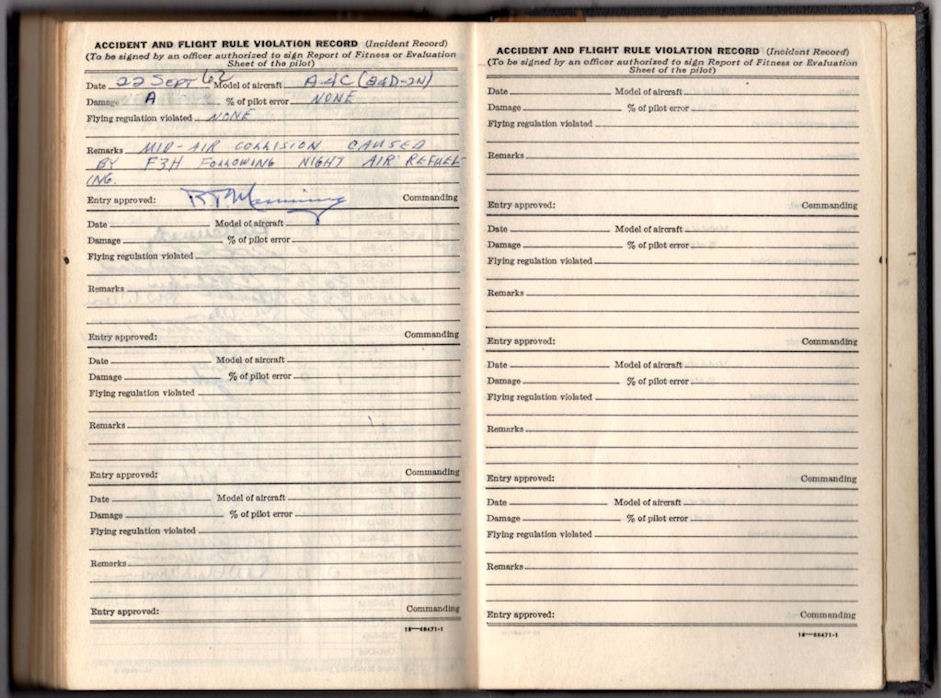 ACCIDENT AND FLIGHT RULE VIOLATION RECORD (Incident Record)
(To be signed by an officer authorized to sign Report of Fitness or Evaluation
Sheet of the pilot)
Date 22 SEPT 62 Model of aircraft A-4C (A4D-2N)
Damage A % of pilot error NONE
Flying regulation violated NONE
Remarks MID-AIR COLLISION CAUSED
BY F3H FOLLOWING NIGHT AIR REFUEL-
ING.
Entry approved: Commanding
Date Model of aircraft
Damage % of pilot error
Flying regulation violated
Remarks
Entry approved: Commanding
Date Model of aircraft
Damage % of pilot error
Flying regulation violated
Remarks
Entry approved: Commanding
Date Model of aircraft
Damage % of pilot error
Flying regulation violated
Remarks
Entry approved: Commanding
16—68471-1
ACCIDENT AND FLIGHT RULE VIOLATION RECORD (Incident Record)
(To be signed by an officer authorized to sign Report of Fitness or Evaluation
Sheet of the pilot)
Date Model of aircraft
Damage % of pilot error
Flying regulation violated
Remarks
Entry approved: Commanding
Date Model of aircraft
Damage % of pilot error
Flying regulation violated
Remarks
Entry approved: Commanding
Date Model of aircraft
Damage % of pilot error
Flying regulation violated
Remarks
Entry approved: Commanding
Date Model of aircraft
Damage % of pilot error
Flying regulation violated
Remarks
Entry approved: Commanding
16—68471-1